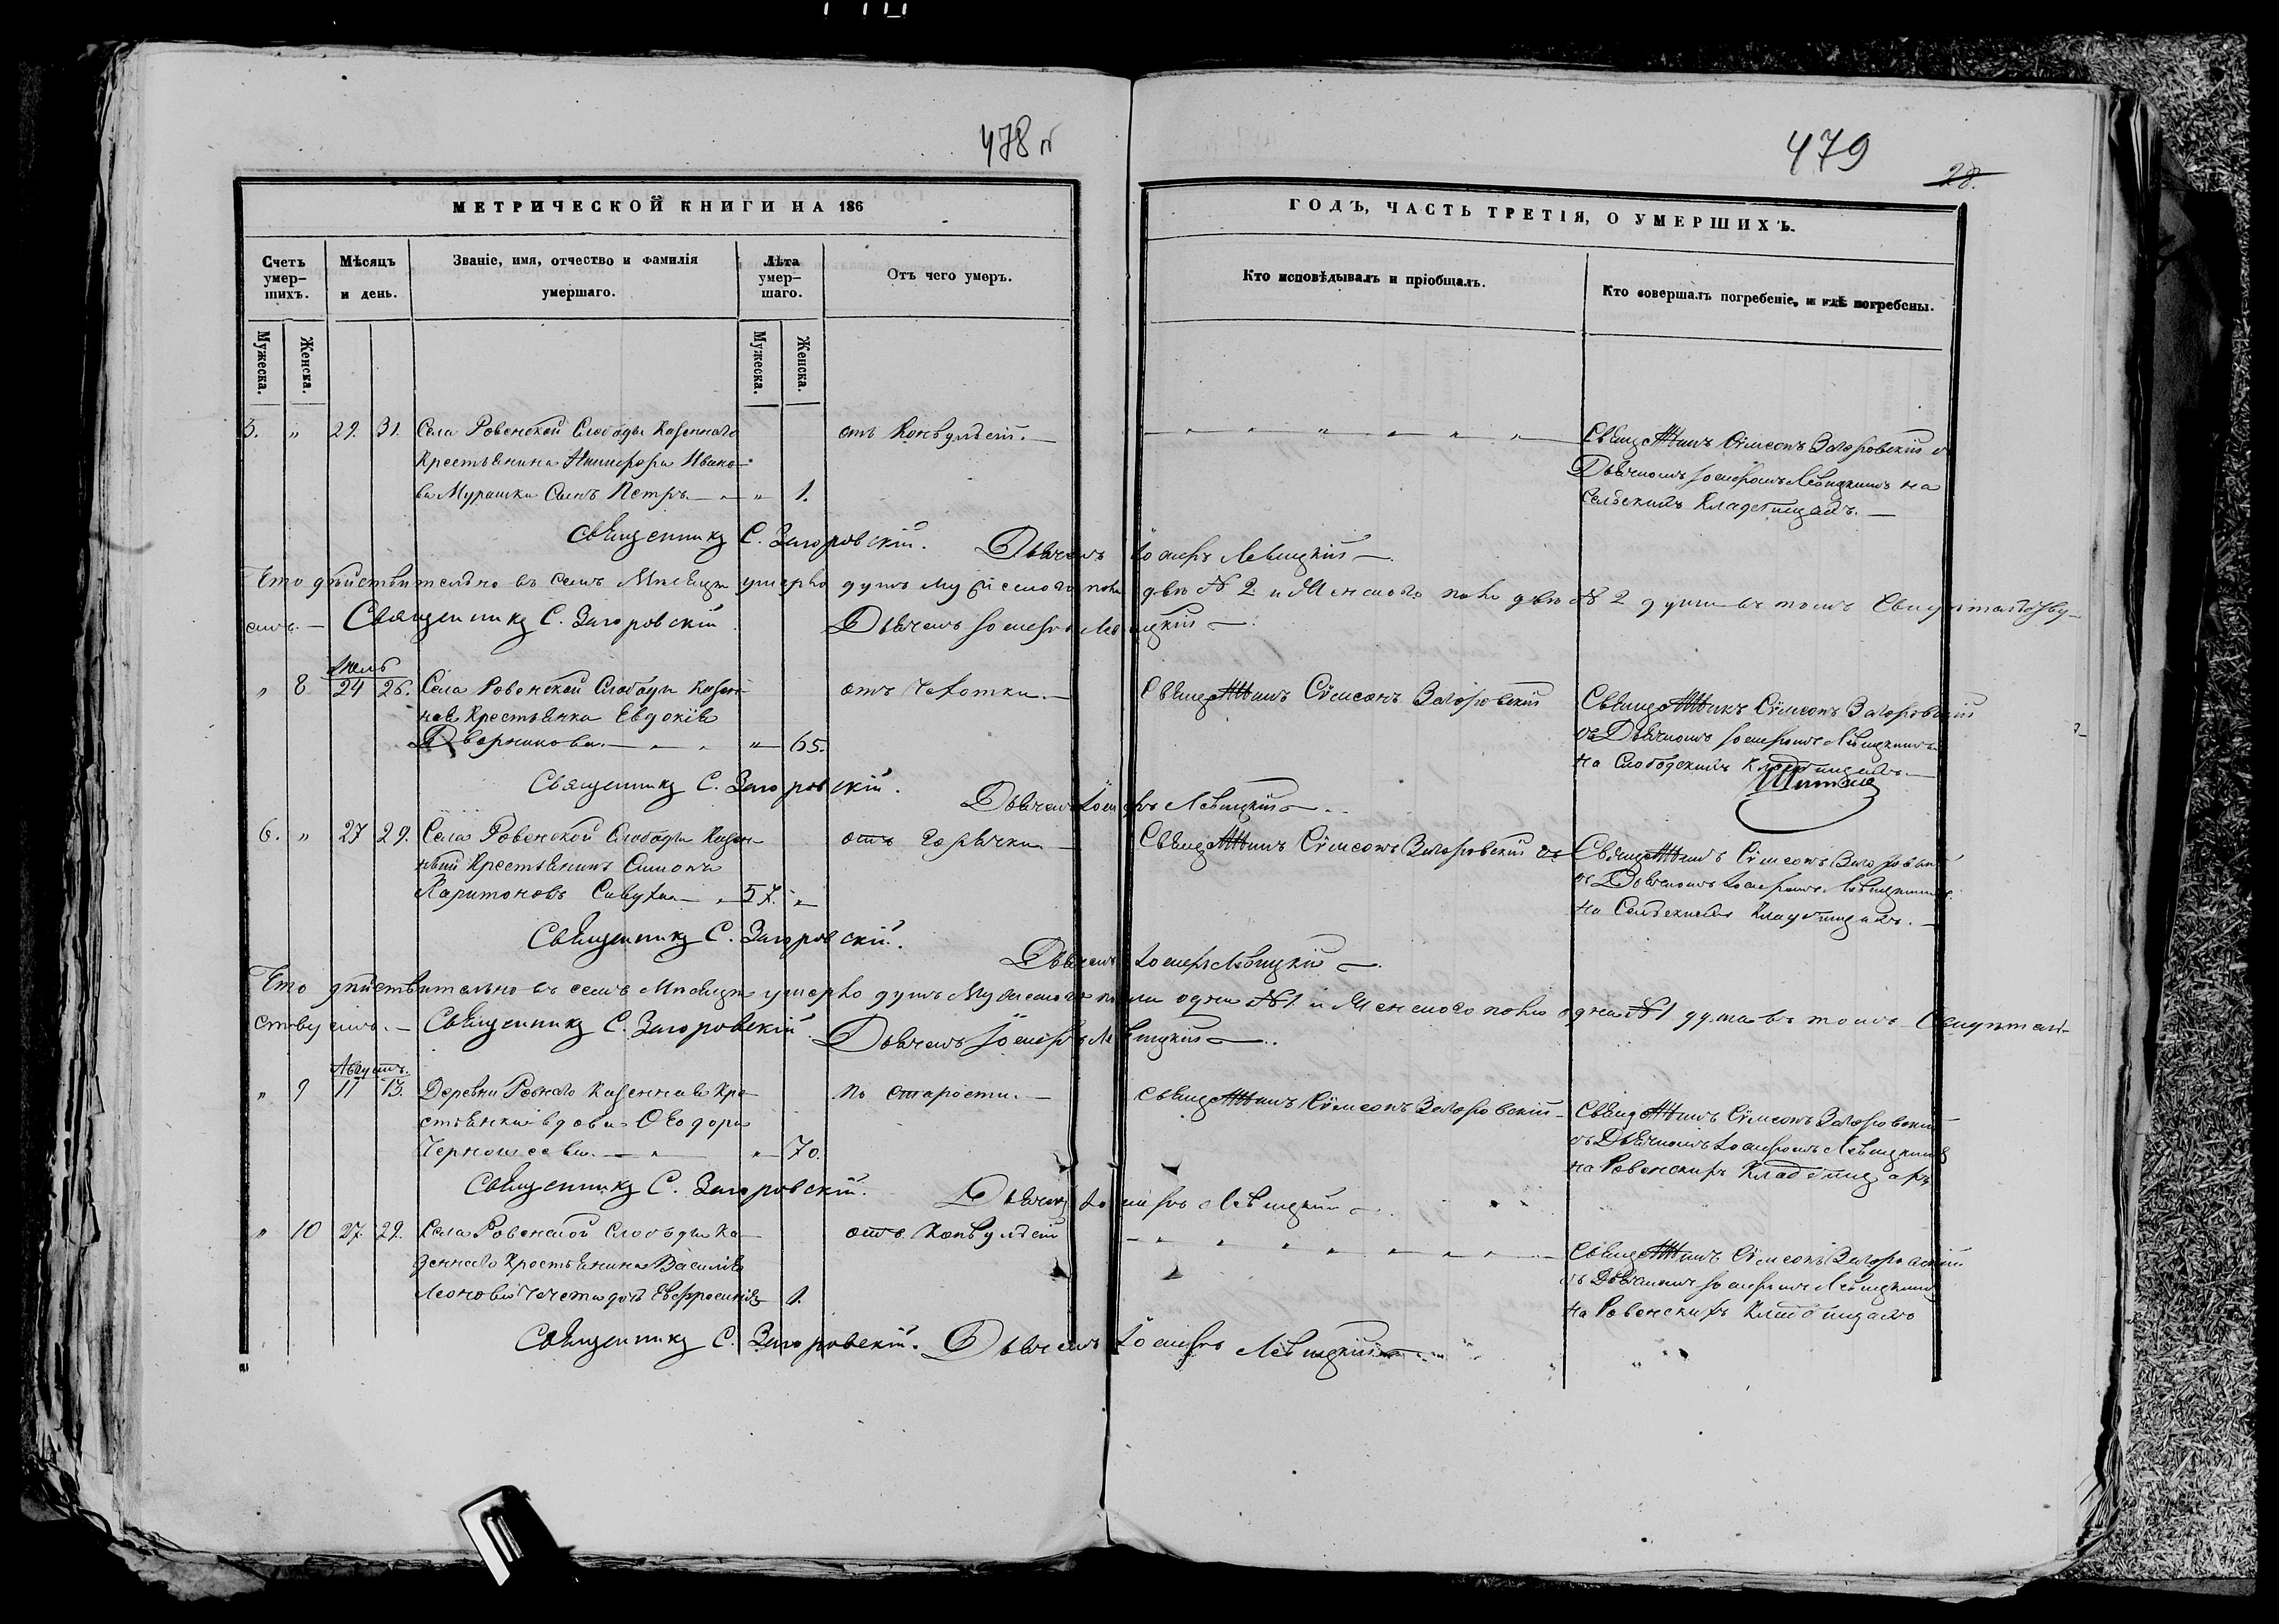 478 об
МЕТРИЧЕСКОЙ КНИГИ НА 186
Счетъ умер-шихъ.
Мѣсяцъ и день.
Званіе, имя, отчество и фамилія умершаго.
Лѣта умер-шаго.
Отъ чего умеръ.
Мужеска.
Женска.
Мужеска.
Женска.
5. " 29. 31. Села Ровенской Слободы Казеннаго отъ Конвульсій. —
Крестьянина Никифора Ивано-
ва Мурашки Сынъ Петръ — " — " 1.
Священникъ С. Загоровскій. Дьячекъ Іосифъ Левицкій
Что дѣйствительно въ семъ Мѣсяцѣ умерло душъ Мужескаго пола двѣ № 2 и Женскаго пола двѣ № 2 души въ томъ Свидѣтельству-
емъ. — Священникъ С. Загоровскій Дьячекъ Іосифъ Левицкій
" 8 24 26. Села Ровенской Слободы Казен- отъ Чахотки. —
ная Крестьянка Евдокія
Дворникова. — " " " — 65.
Священникъ С. Загоровскій. Дьячекъ Іосифъ Левицкій
6. " 27 29. Села Ровенской Слободы Казен- отъ Горячки —
ный Крестьянинъ Симонъ
Харитоновъ Савуха — " 57. "
Священникъ С. Загоровскій. Дьячекъ Іосифъ Левицкій
Что дѣйствительно въ семъ Мѣсяцѣ умерло душъ Мужескаго пола одна № 1 и Женскаго пола одна № 1 душа въ томъ Свидѣтель-
ствуемъ. — Священникъ С. Загоровскій Дьячекъ Іосифъ Левицкій
Августъ.
" 9 11 13. Деревни Ровнаго Казенная Кре- По старости. —
стьянка вдова Ѳеодора
— " — " 70.
Священникъ С. Загоровскій. Дьячекъ Іосифъ Левицкій
" 10 27. 29. Села Ровенской Слободы Ка- отъ Конвульсій
зеннаго Крестьянина Василія
Леонова дочь Евфросинія 1.
Священникъ С. Загоровскій. Дьячекъ Іосифъ Левицкій
479
28.
ГОДЪ, ЧАСТЬ ТРЕТІЯ, О УМЕРШИХЪ.
Кто исповѣдывалъ и пріобщалъ.
Кто совершалъ погребеніе, и гдѣ погребены.
Священникъ Сѵмеонъ Загоровскій съ
Дьячкомъ Іосифомъ Левицкимъ на
Сельскихъ Кладбищахъ. —
Священникъ Сѵмеонъ Загоровскій Священникъ Сѵмеонъ Загоровскій
съ Дьячкомъ Іосифомъ Левицкимъ
на Слободскихъ Кладбищахъ. —
Священникъ Сѵмеонъ Загоровскій Священникъ Сѵмеонъ Загоровскій
съ Дьячкомъ Іосифомъ Левицкимъ
на Сельскихъ Кладбищахъ. —
Священникъ Сѵмеонъ Загоровскій — Священникъ Сѵмеонъ Загоровскій
съ Дьячкомъ Іосифомъ Левицкимъ
на Ровенскихъ Кладбищахъ
Священникъ Сѵмеонъ Загоровскій
съ Дьячкомъ Іосифомъ Левицкимъ
на Ровенскихъ Кладбищахъ